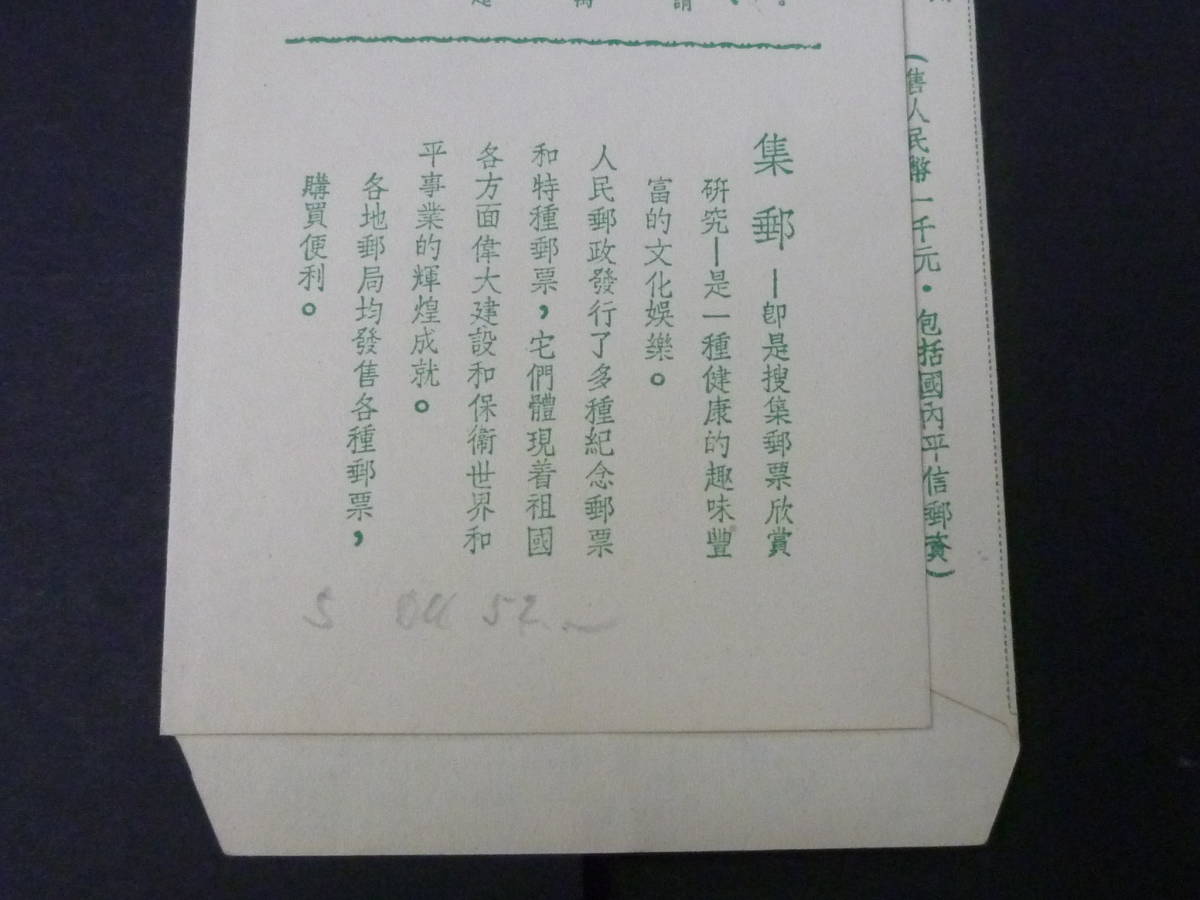 （售人民幣一千元・包括國內平信郵資）
集郵—卽是搜集郵票欣賞
硏究—是一種健康的趣味豐
富的文化娛樂。
人民郵政發行了多種紀念郵票
和特種郵票，它們體現着祖國
各方面偉大建設和保衛世界和
平事業的輝煌成就。
各地郵局均發售各種郵票，
購買便利。